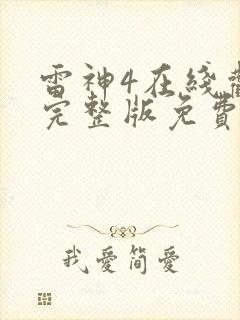 雷神4在线
完整版免費
我爱简爱